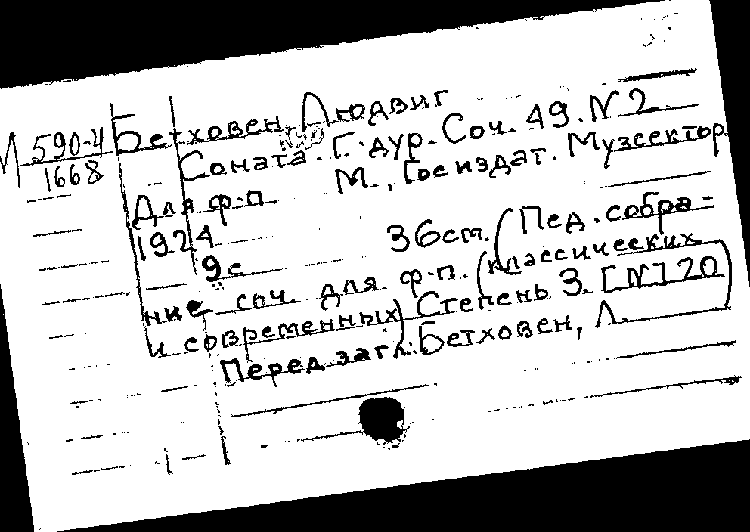 Бетховен, Людвиг
М 590-4
1668
Соната. Г. дур. Соч. 49. N 2
Для ф-п. М., Госиздат. Музсектор
1924
9 с 36 см. (Пед. собра-
ние соч. для ф-п. (классических
и современных) Степень 3. [N] 20)
Перед загл.: Бетховен, Л.